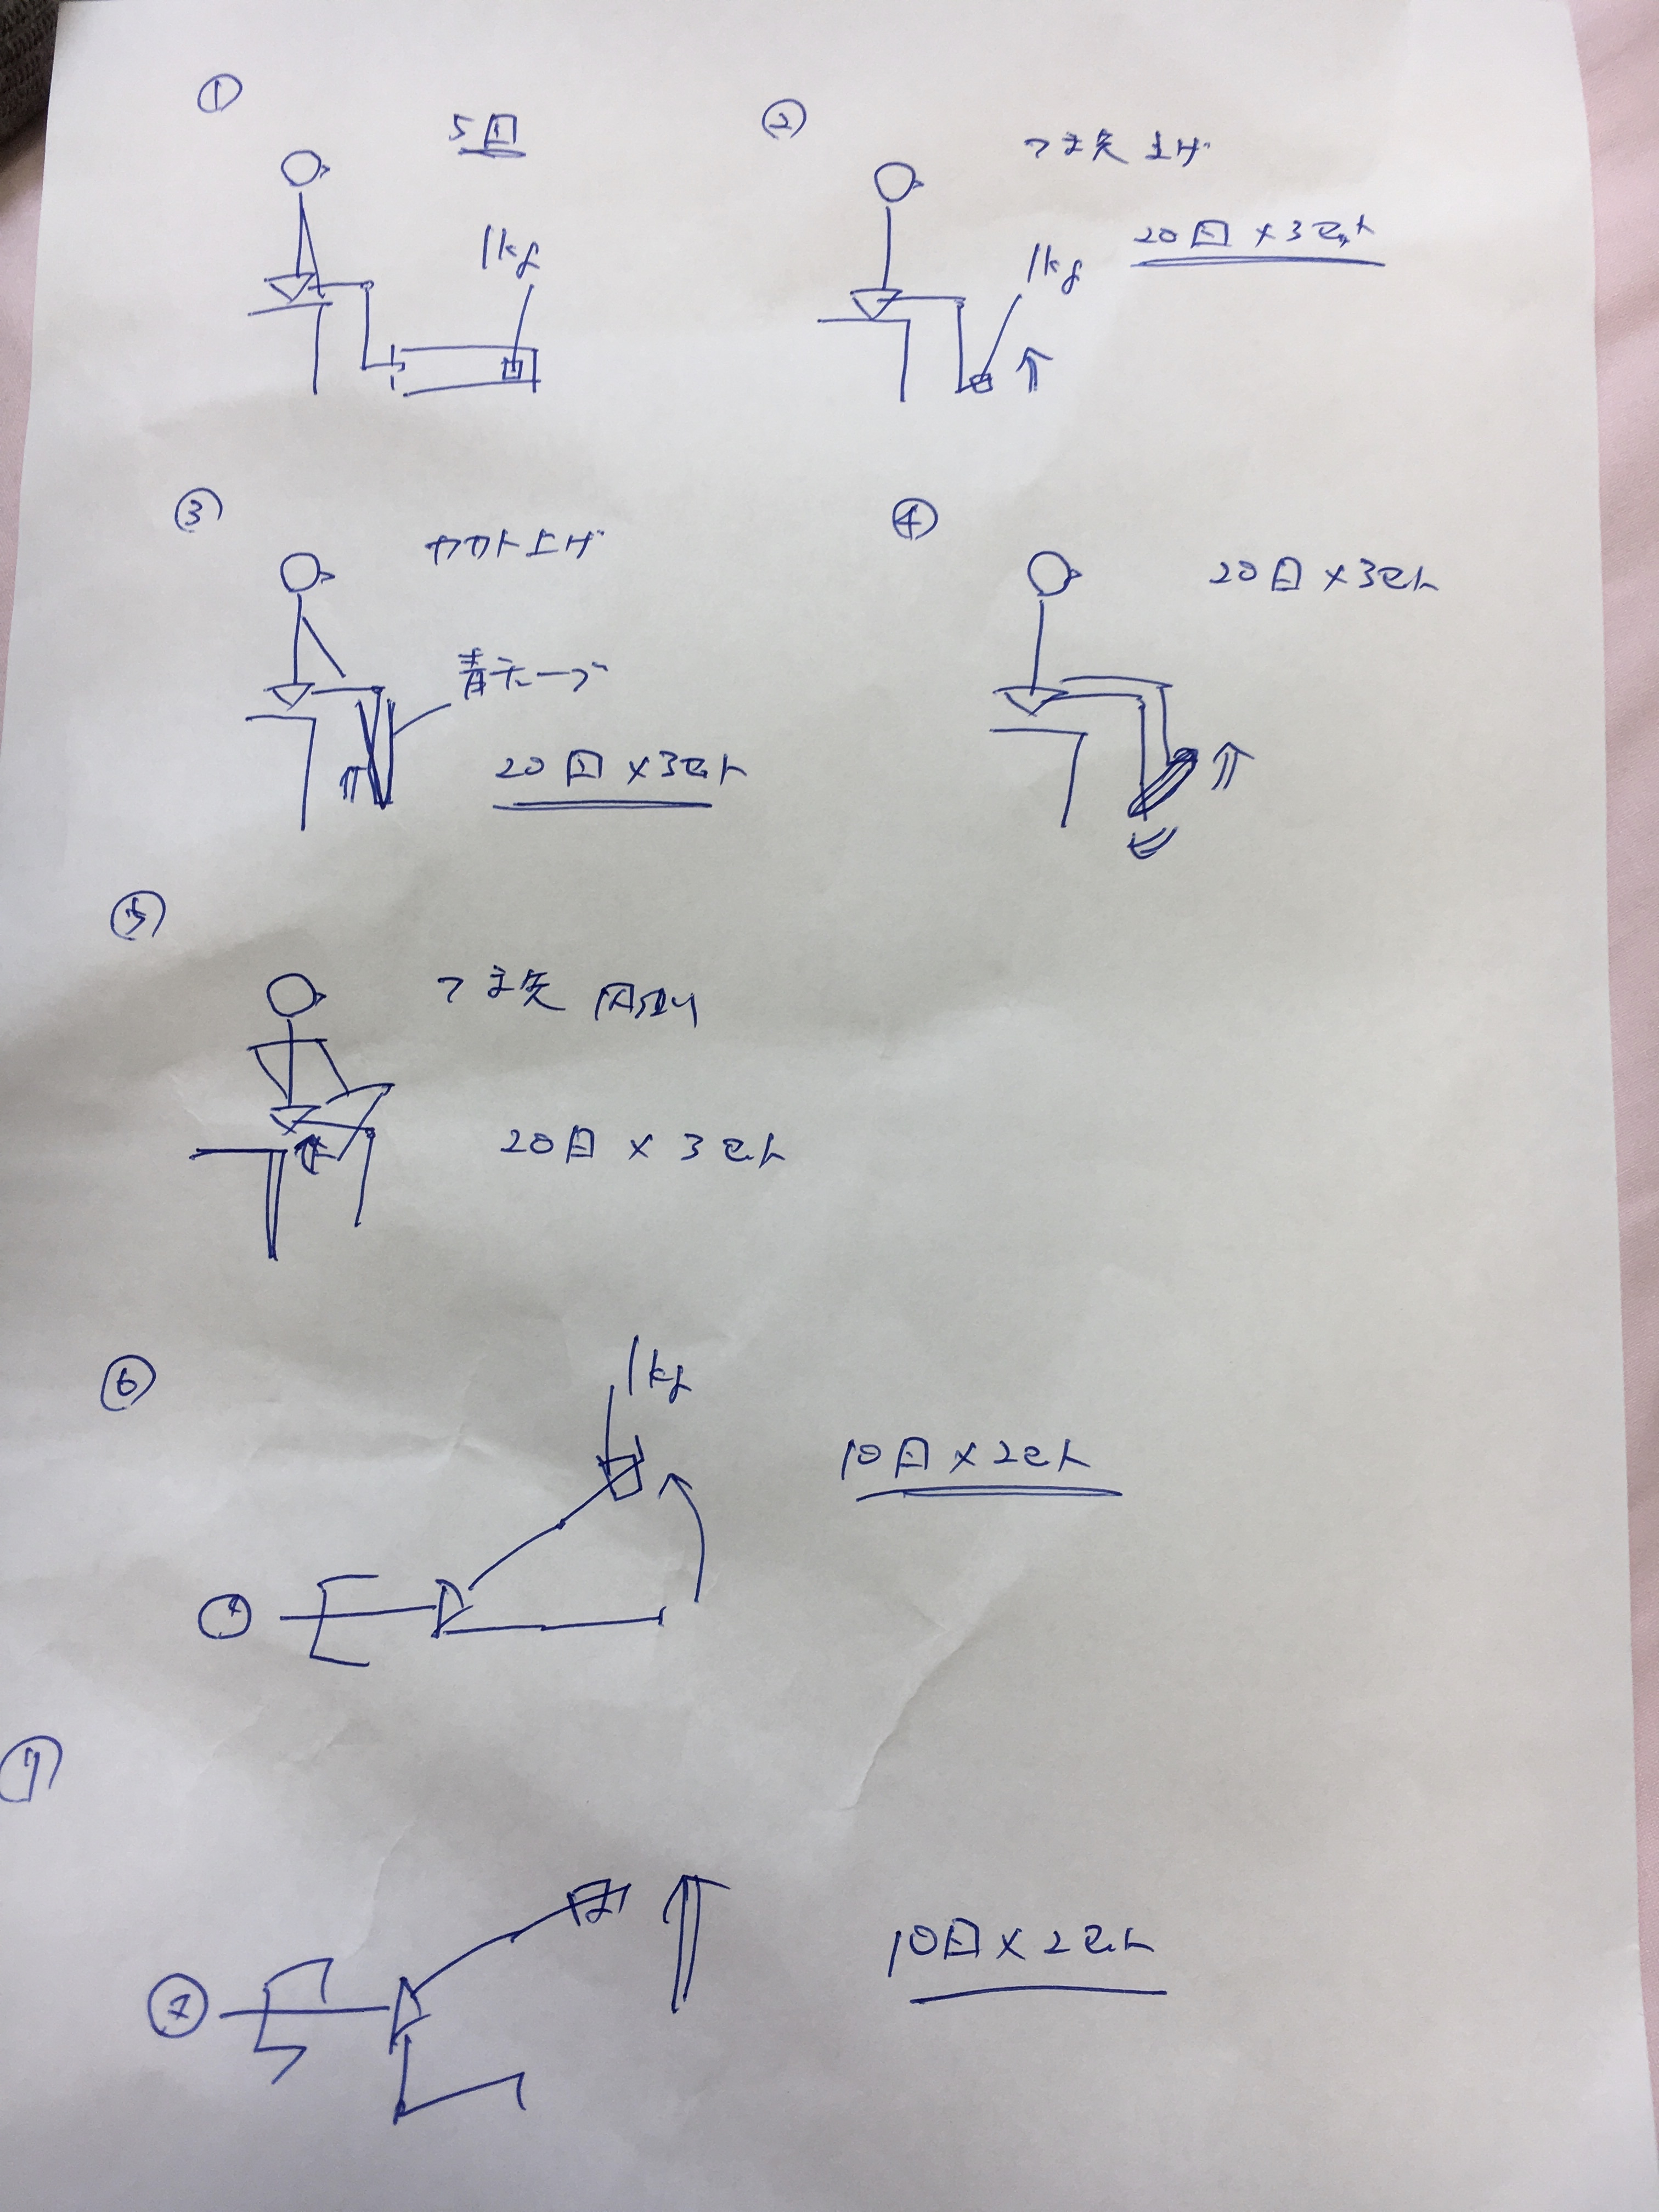 ①
5回
1kg
②
つま先上げ
1kg
20回×3セット
③
カカト上げ
青チューブ
20回×3セット
④
20回×3セット
⑤
つま先
20回×3セット
⑥
1kg
10回×2セット
⑦
10回×2セット